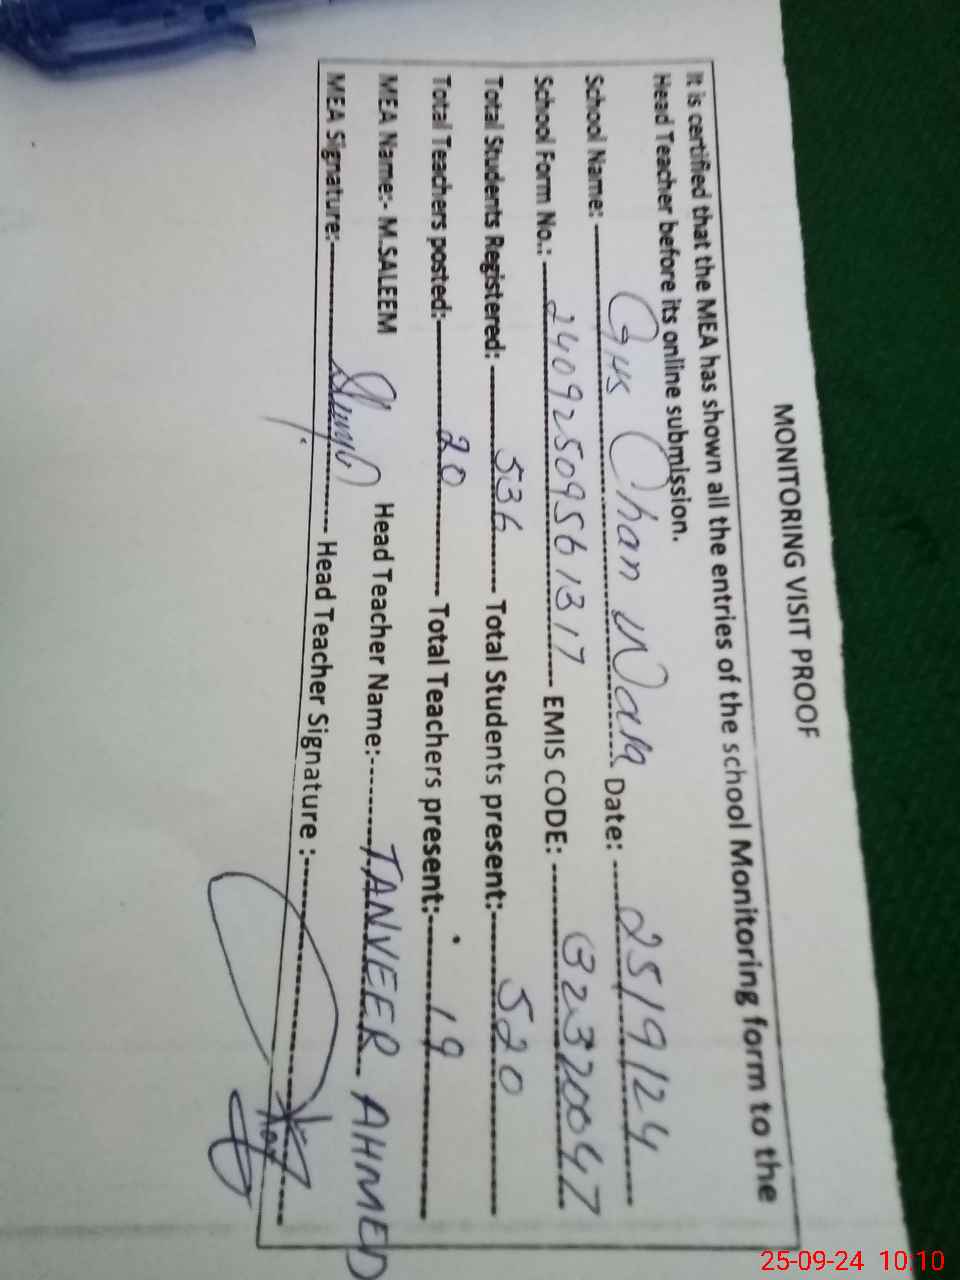 MONITORING VISIT PROOF
It is certified that the MEA has shown all the entries of the school Monitoring form to the
Head Teacher before its online submission.
School Name: GHS Chan Wala Date: 25/9/24
School Form No.: 24092509561317 EMIS CODE: 32320047
Total Students Registered: 536 Total Students present:- 520
Total Teachers posted:- 20 Total Teachers present:- 19
MEA Name:- M.SALEEM Head Teacher Name:- TANVEER AHMED
MEA Signature:- Head Teacher Signature :-
25-09-24 10:10